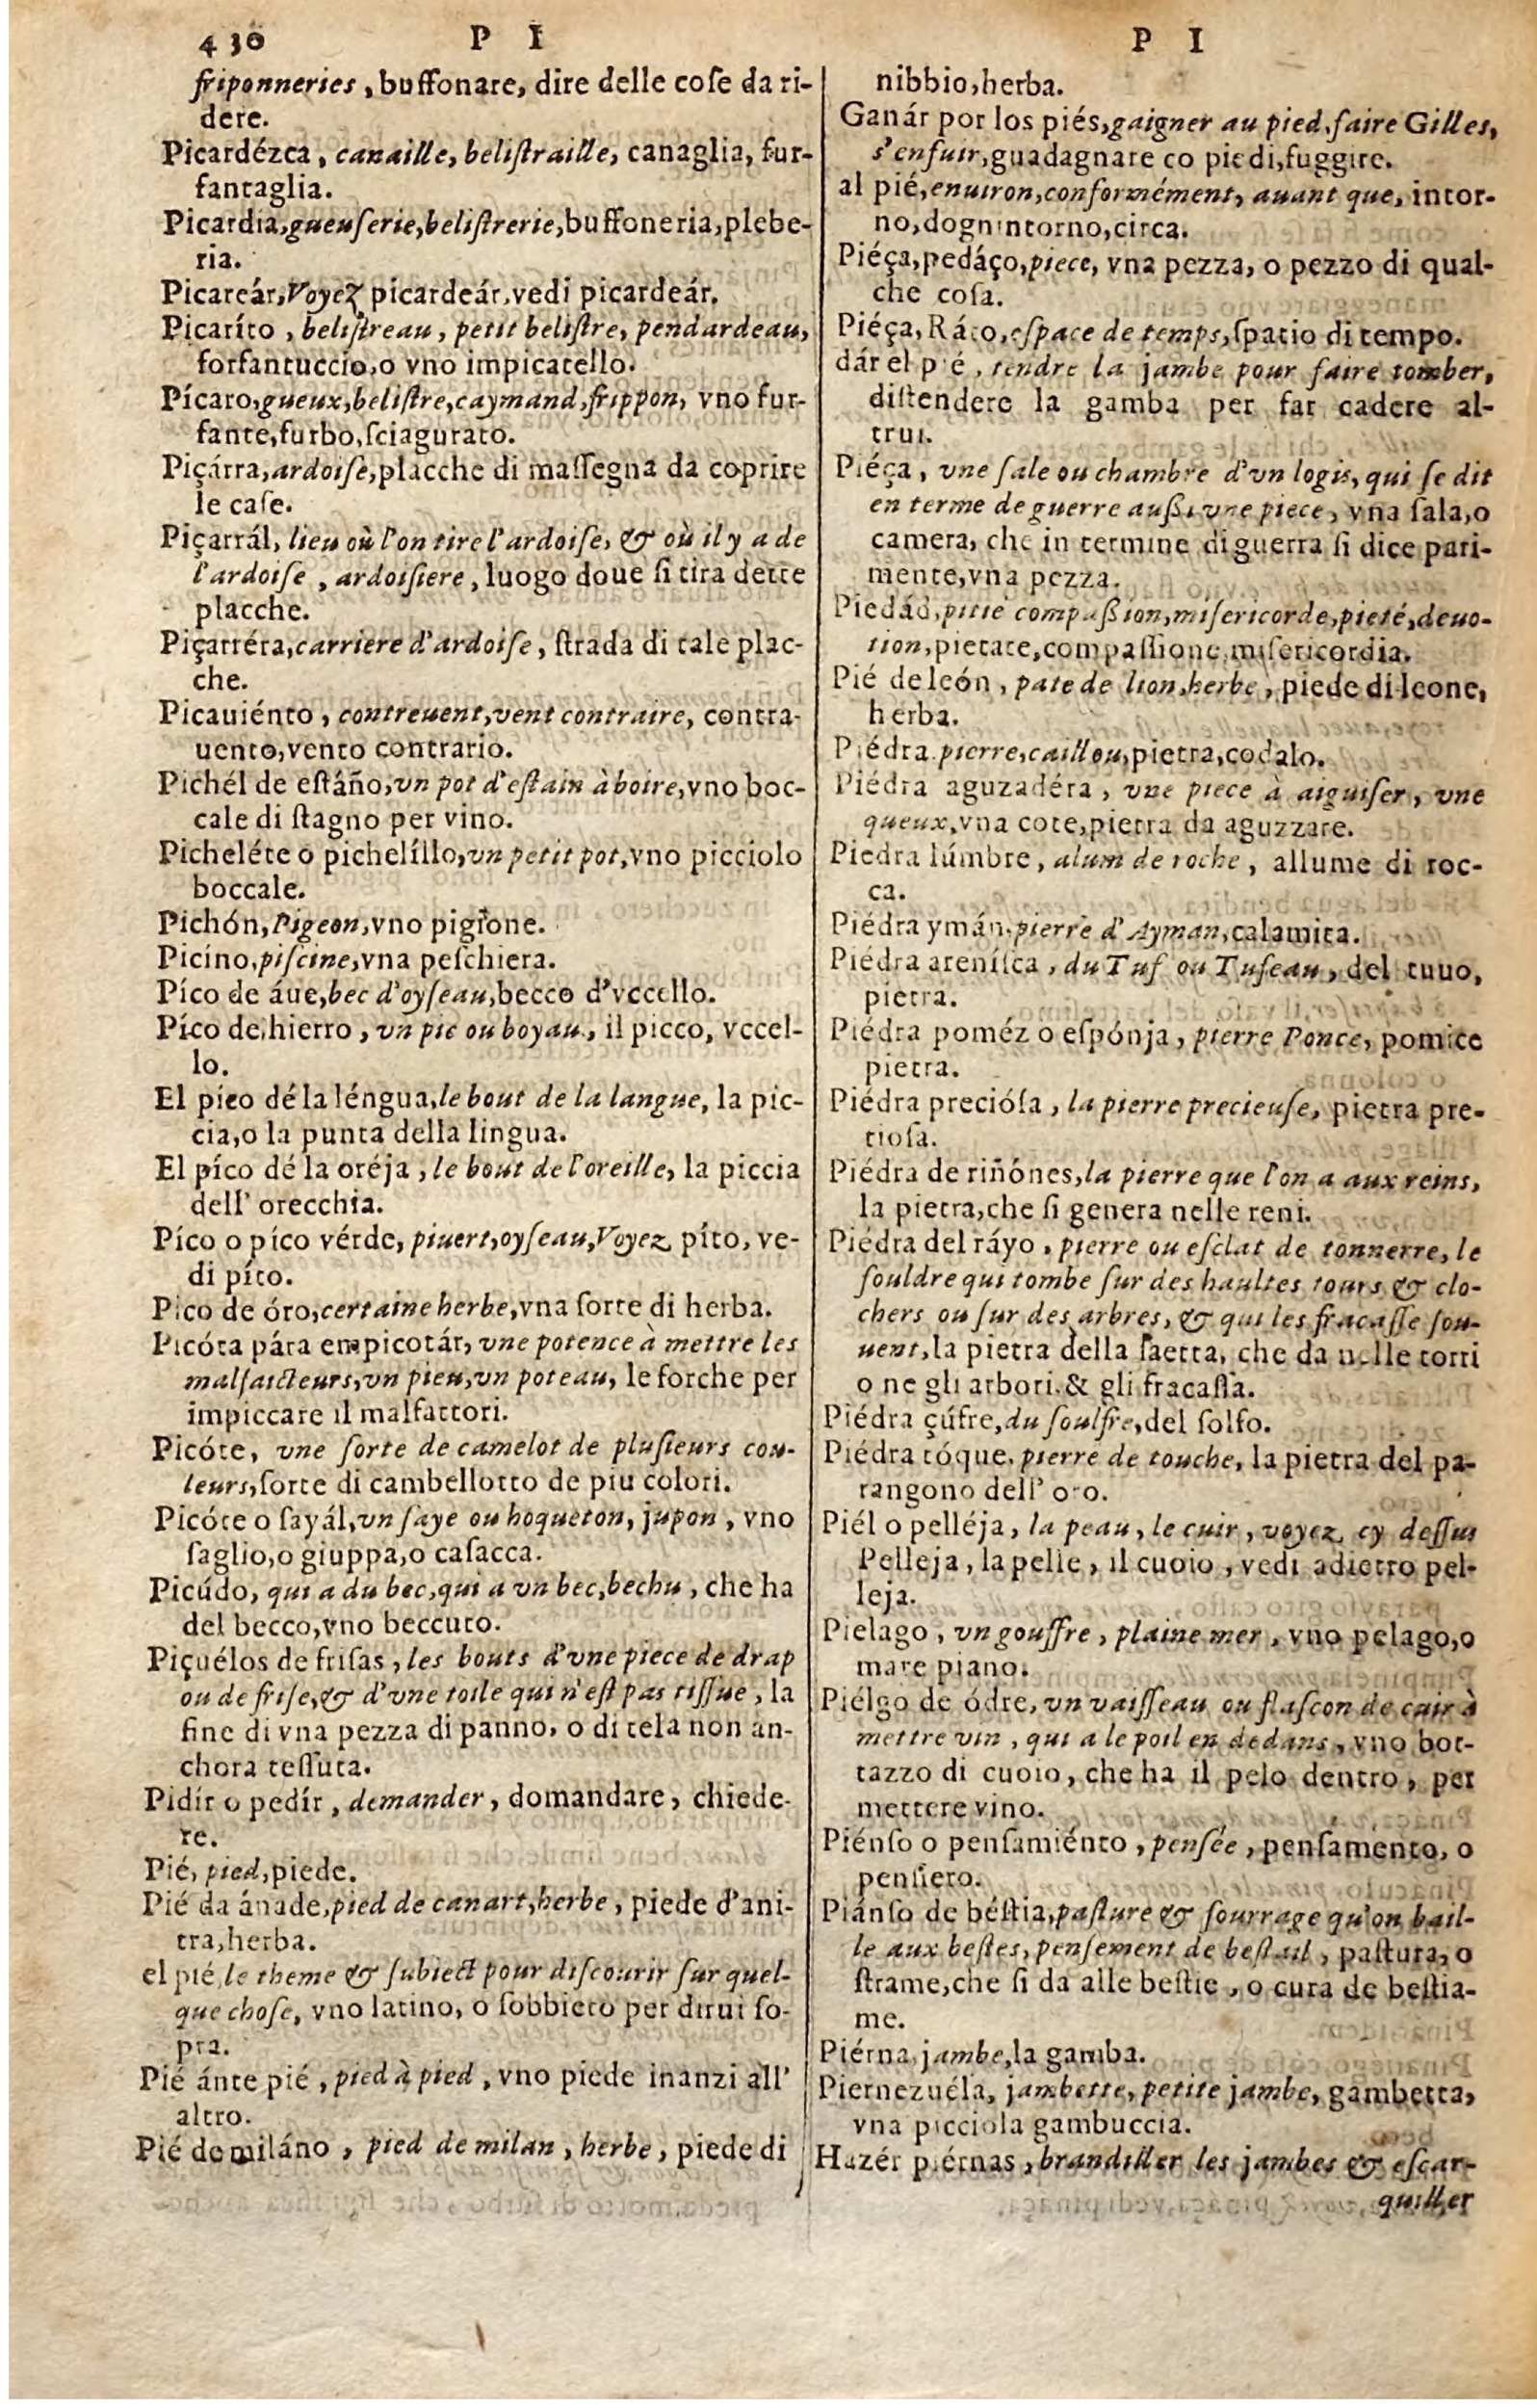 430 P I
friponneries, buffonare, dire delle cose da ri-
dere.
Picardézca, canaille, beliſtraille, canaglia, fur-
fantaglia.
Picardia, gueuſerie, beliſtrerie, buffoneria, plebe-
ria.
Picareár, Voyez picardeár, vedi piçardeár.
Picaríto, beliſtreau, petit beliſtre, pendardeau,
forfantuccio, o vno impicatello.
Pícaro, gueux, beliſtre, caymand, frippon, vno fur-
fante, furbo, ſciagurato.
Piçárra, ardoiſe, placche di maſſegna da coprire
le caſe.
Piçarrál, lieu où l'on tire l'ardoiſe, & où il y a de
l'ardoiſe, ardoiſiere, luogo doue ſi tira dette
placche.
Piçarréra, carriere d'ardoiſe, ſtrada di tale plac-
che.
Picauiénto, contreuent, vent contraire, contra-
uento, vento contrario.
Pichél de eſtáño, vn pot d'eſtain à boire, vno boc-
cale di ſtagno per vino.
Picheléte o pichelíllo, vn petit pot, vno picciolo
boccale.
Pichón, Pigeon, vno pigione.
Picíno, piſcine, vna peſchiera.
Píco de áue, bec d'oyſeau, becco d'vccello.
Píco de hierro, vn pic ou boyau, il picco, vccel-
lo.
El pico dé la léngua, le bout de la langue, la pic-
cia, o la punta della lingua.
El píco dé la oréja, le bout de l'oreille, la piccia
dell' orecchia.
Píco o píco vérde, piuert, oyſeau, Voyez píto, ve-
di píto.
Pico de óro, certaine herbe, vna ſorte di herba.
Picóta pára empicotár, vne potence à mettre les
malfaicteurs, vn pieu, vn poteau, le forche per
impiccare il malfattori.
Picóte, vne ſorte de camelot de pluſieurs cou-
leurs, ſorte di cambellotto de piu colori.
Picóte o ſayál, vn ſaye ou hoqueton, jupon, vno
ſaglio, o giuppa, o caſacca.
Picúdo, qui a du bec, qui a vn bec, bechu, che ha
del becco, vno beccuto.
Piçuélos de friſas, les bouts d'vne piece de drap
ou de friſe, & d'vne toile qui n'eſt pas tiſſue, la
fine di vna pezza di panno, o di tela non an-
chora teſſuta.
Pidír o pedír, demander, domandare, chiede-
re.
Pié, pied, piede.
Pié da ánade, pied de canart, herbe, piede d'ani-
tra, herba.
el pié, le theme & ſubiect pour diſcourir ſur quel-
que choſe, vno latino, o ſobbieto per dirui ſo-
pra.
Pié ánte pié, pied à pied, vno piede inanzi all'
altro.
Pié de miláno, pied de milan, herbe, piede di
P I
nibbio, herba.
Ganár por los piés, gaigner au pied, faire Gilles,
s'enfuir, guadagnare co piedi, fuggire.
al pié, enuiron, conformément, auant que, intor-
no, dognintorno, circa.
Piéça, pedáço, piece, vna pezza, o pezzo di qual-
che coſa.
Piéça, Ráto, eſpace de temps, ſpatio di tempo.
dár el pié, tendre la jambe pour faire tomber,
diſtendere la gamba per far cadere al-
trui.
Piéça, vne ſale ou chambre d'vn logis, qui ſe dit
en terme de guerre auſſi vne piece, vna ſala, o
camera, che in termine di guerra ſi dice pari-
mente, vna pezza.
Piedád, pitié compaſſion, miſericorde, pieté, deuo-
tion, pietate, compaſſione, miſericordia.
Pié de león, pate de lion, herbe, piede di leone,
herba.
Piédra pierre, caillou, pietra, codalo.
Piédra aguzadéra, vne piece à aiguiſer, vne
queux, vna cote, pietra da aguzzare.
Piedra lúmbre, alum de roche, allume di roc-
ca.
Piédra ymán, pierre d'Ayman, calamita.
Piédra areníſca, du Tuf ou Tufeau, del tuuo,
pietra.
Piédra poméz o eſpónja, pierre Ponce, pomice
pietra.
Piédra precióſa, la pierre precieuſe, pietra pre-
tioſa.
Piédra de riñónes, la pierre que l'on a aux reins,
la pietra, che ſi genera nelle reni.
Piédra del ráyo, pierre ou eſclat de tonnerre, le
fouldre qui tombe ſur des haultes tours & clo-
chers ou ſur des arbres, & qui les fracaſſe ſou-
uent, la pietra della ſaetta, che da nelle torri
o ne gli arbori, & gli fracaſſa.
Piédra çúfre, du ſoulfre, del ſolfo.
Piédra tóque, pierre de touche, la pietra del pa-
rangono dell' oro.
Piél o pelléja, la peau, le cuir, voyez cy deſſus
Pelleja, la pelle, il cuoio, vedi adietro pel-
leja.
Pielago, vn gouffre, plaine mer, vno pelago, o
mare piano.
Piélgo de ódre, vn vaiſſeau ou flaſcon de cuir à
mettre vin, qui a le poil en dedans, vno bot-
tazzo di cuoio, che ha il pelo dentro, per
mettere vino.
Piénſo o penſamiénto, penſée, penſamento, o
penſiero.
Piánſo de béſtia, paſture & fourrage qu'on bail-
le aux beſtes, penſement de beſtail, paſtura, o
ſtrame, che ſi da alle beſtie, o cura de beſtia-
me.
Piérna, jambe, la gamba.
Piernezuéla, jambette, petite jambe, gambetta,
vna picciola gambuccia.
Hazér piérnas, brandiller les jambes & eſcar-
quiller